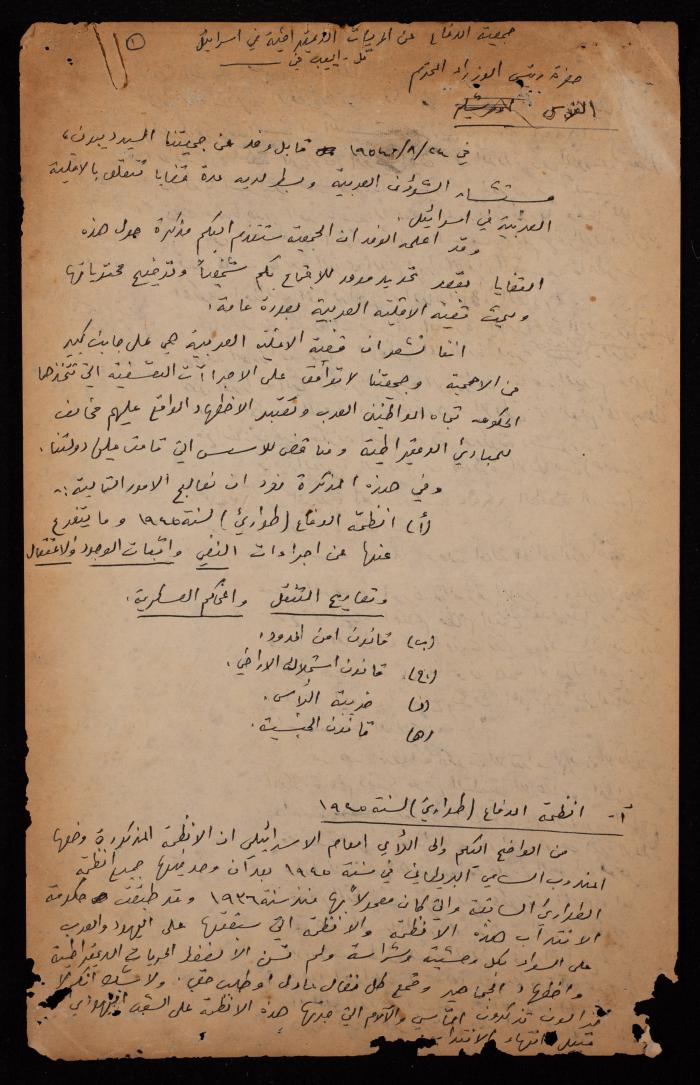 ١
جمعية الدفاع عن الحريات الديمقراطية في اسرائيل
تل - ابيب في
حضرة رئيس الوزراء المحترم
القدس
في ٢٤/٨/١٩٥٣ قابل وفد عن جمعيتنا السيد ديبون،
مستشار الشؤون العربية وبسط لديه عدة قضايا تتعلق بالاقلية
العربية في اسرائيل.
وقد اعلمه الوفد ان الجمعية ستتقدم اليكم مذكرة حول هذه
القضايا بقصد تحديد موعد للاجتماع بكم شخصياً وتوضيح محتوياتها
وبحث قضية الاقلية العربية بصورة عامة.
اننا نشعر ان قضية الاقلية العربية هي على جانب كبير
من الاهمية وجمعيتنا لا توافق على الاجراآت التعسفية التي تتخذها
الحكومه تجاه المواطنين العرب وتعتبر الاضطهاد الواقع عليهم مخالف
للمبادئ الديمقراطية ومناقض للاسس التي قامت عليها دولتنا.
وفي هذه المذكرة نود ان نعالج الامور التالية :-
(أ) انظمة الدفاع (طوارئ) لسنة ١٩٤٥ وما يتفرع
عنها من اجراءات النفي واثبات الوجود والاعتقال
وتصاريح التنقل والمحاكم العسكرية.
(ب) قانون امن الحدود.
(ج) قانون استملاك الاراضي.
(د) ضريبة الرأس.
(ه) قانون الجنسية.
أ - انظمة الدفاع (طوارئ) لسنة ١٩٤٥
من الواضح اليكم والى الرأي العام الاسرائيلي ان الانظمة المذكورة وضعها
المندوب السامي البريطاني في سنة ١٩٤٥ بعد ان وحد فيها جميع انظمة
الطوارئ السابقة والتي كان معمولاً بها منذ سنة ١٩٣٦ وقد طبقت حكومة
الانتداب هذه الانظمة والانظمة التي سبقتها على اليهود والعرب
على السواء بكل وحشية وشراسة ولم تسن الا لضغط الحريات الديمقراطية
واضطهاد الجماهير وقمع كل نضال عادل او طلب حق. ولا شك انكم لا
تزالون تذكرون المآسي والآلام التي جرتها هذه الانظمة على الشعب اليهودي
قبيل انتهاء الانتداب